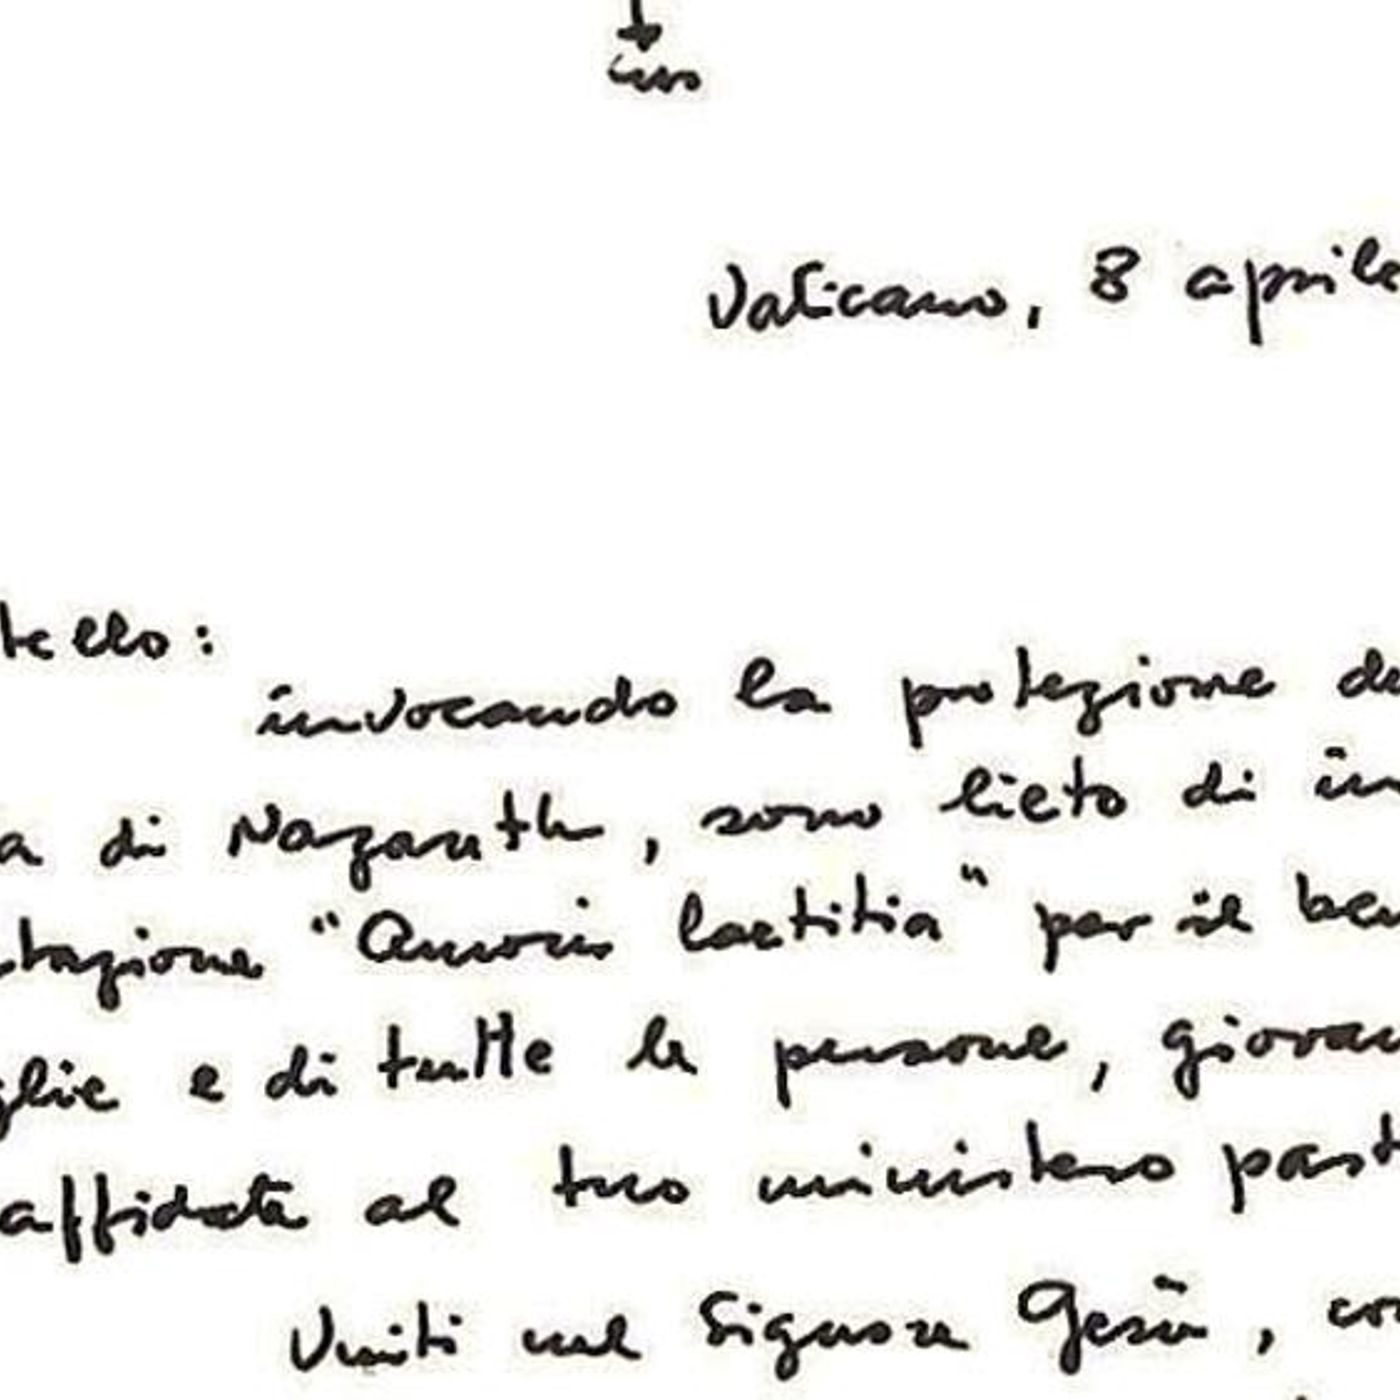 Vaticano, 8 aprile
tello:
invocando la protezione de
a di Nazareth, sono lieto di in
tazione "Amoris laetitia" per il ben
glie e di tutte le persone, giovan
affidate al tuo ministero past
Uniti nel Signore Gesù, co